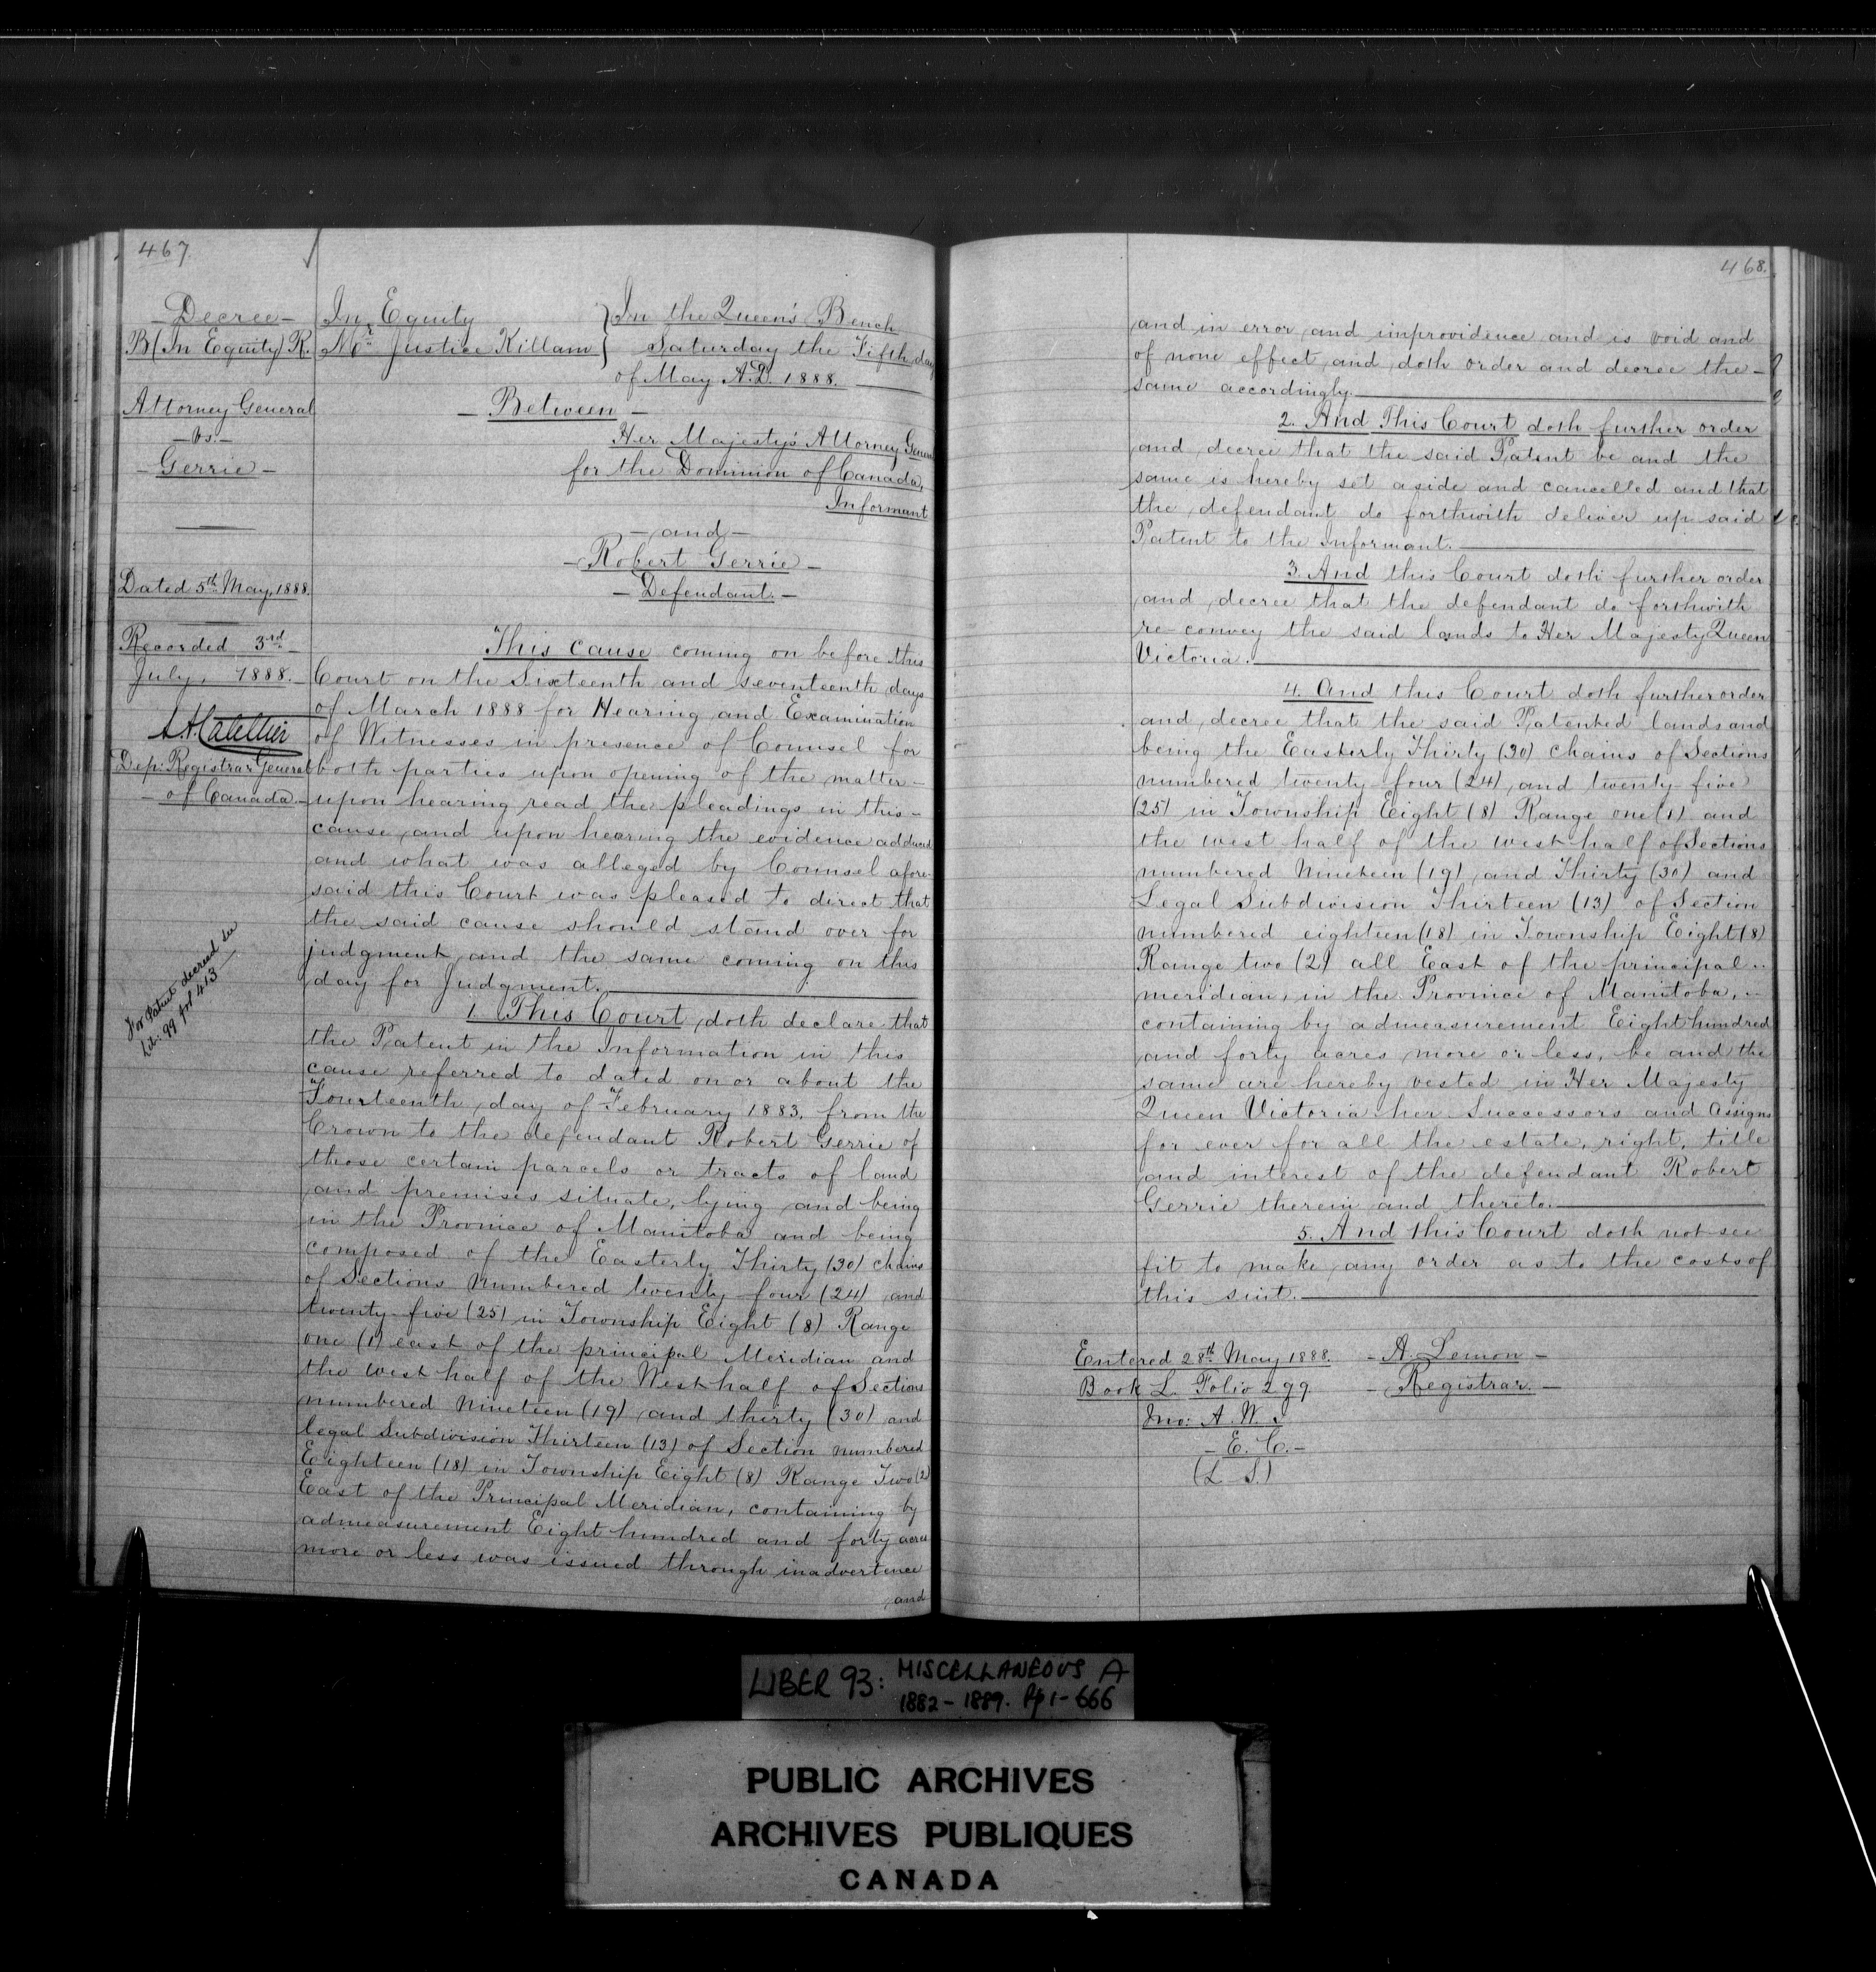 467.
Decree –
B (In Equity) R.
Attorney General
– vs. –
– Gerrie –
Dated 5th May, 1888.
Recorded 3rd
July, 1888. –
Dep: Registrar General
of Canada. –
For Patent decreed see
Lib: 99 fol 413
In Equity
Mr. Justice Killam }
In the Queen's Bench
Saturday the Fifth day
of May A.D. 1888.
– Between –
Her Majesty's Attorney General
for the Dominion of Canada,
Informant
– and –
– Robert Gerrie –
– Defendant. –
This cause coming on before this
Court on the Sixteenth and seventeenth days
of March 1888 for Hearing and Examination
of Witnesses in presence of Counsel for
both parties upon opening of the matter –
upon hearing read the pleadings in this –
cause and upon hearing the evidence adduced
and what was alleged by Counsel afore-
said this Court was pleased to direct that
the said cause should stand over for
judgment and the same coming on this
day for Judgment.
1. This Court doth declare that
the Patent in the Information in this
cause referred to dated on or about the
Fourteenth day of February 1883, from the
Crown to the defendant Robert Gerrie of
those certain parcels or tracts of land
and premises situate, lying and being
in the Province of Manitoba and being
composed of the Easterly Thirty (30) chains
of Sections numbered twenty four (24) and
twenty five (25) in Township Eight (8) Range
one (1) east of the principal Meridian and
the west half of the West half of Sections
numbered Nineteen (19) and thirty (30) and
legal Subdivision Thirteen (13) of Section numbered
Eighteen (18) in Township Eight (8) Range Two (2)
East of the Principal Meridian, containing by
admeasurement Eight hundred and forty acres
more or less was issued through inadvertence
and
468.
and in error and improvidence and is void and
of none effect and doth order and decree the –
same accordingly.
2. And This Court doth further order
and decree that the said Patent be and the
same is hereby set aside and cancelled and that
the defendant do forthwith deliver up said
Patent to the Informant.
3. And this Court doth further order
and decree that the defendant do forthwith
re-convey the said lands to Her Majesty Queen
Victoria.
4. And this Court doth further order
and decree that the said Patented lands and
being the Easterly Thirty (30) chains of Sections
numbered twenty four (24) and twenty five
(25) in Township Eight (8) Range one (1) and
the west half of the west half of Sections
numbered Nineteen (19) and Thirty (30) and
Legal Subdivision Thirteen (13) of Section
numbered eighteen (18) in Township Eight (8)
Range two (2) all East of the principal
meridian, in the Province of Manitoba,
containing by admeasurement Eight hundred
and forty acres more or less, be and the
same are hereby vested in Her Majesty
Queen Victoria her Successors and Assigns
for ever for all the estate, right, title
and interest of the defendant Robert
Gerrie therein and thereto.
5. And this Court doth not see
fit to make any order as to the costs of
this suit.
Entered 28th May 1888.
Book L. Folio 299
Jno: A. W.
– E. C. –
(L S.)
– A. Lemon –
– Registrar. –
LIBER 93: MISCELLANEOUS A
1882 – 1889. Pp 1 – 666
PUBLIC ARCHIVES
ARCHIVES PUBLIQUES
CANADA